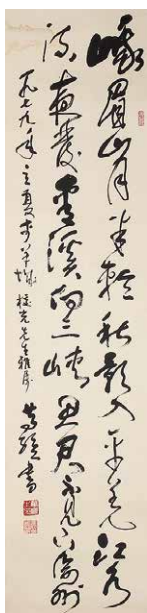 峨眉山月半輪秋影入平羌江水
流夜發清溪向三峽思君不見下渝州
一九七九年立夏 先生雅屬 書